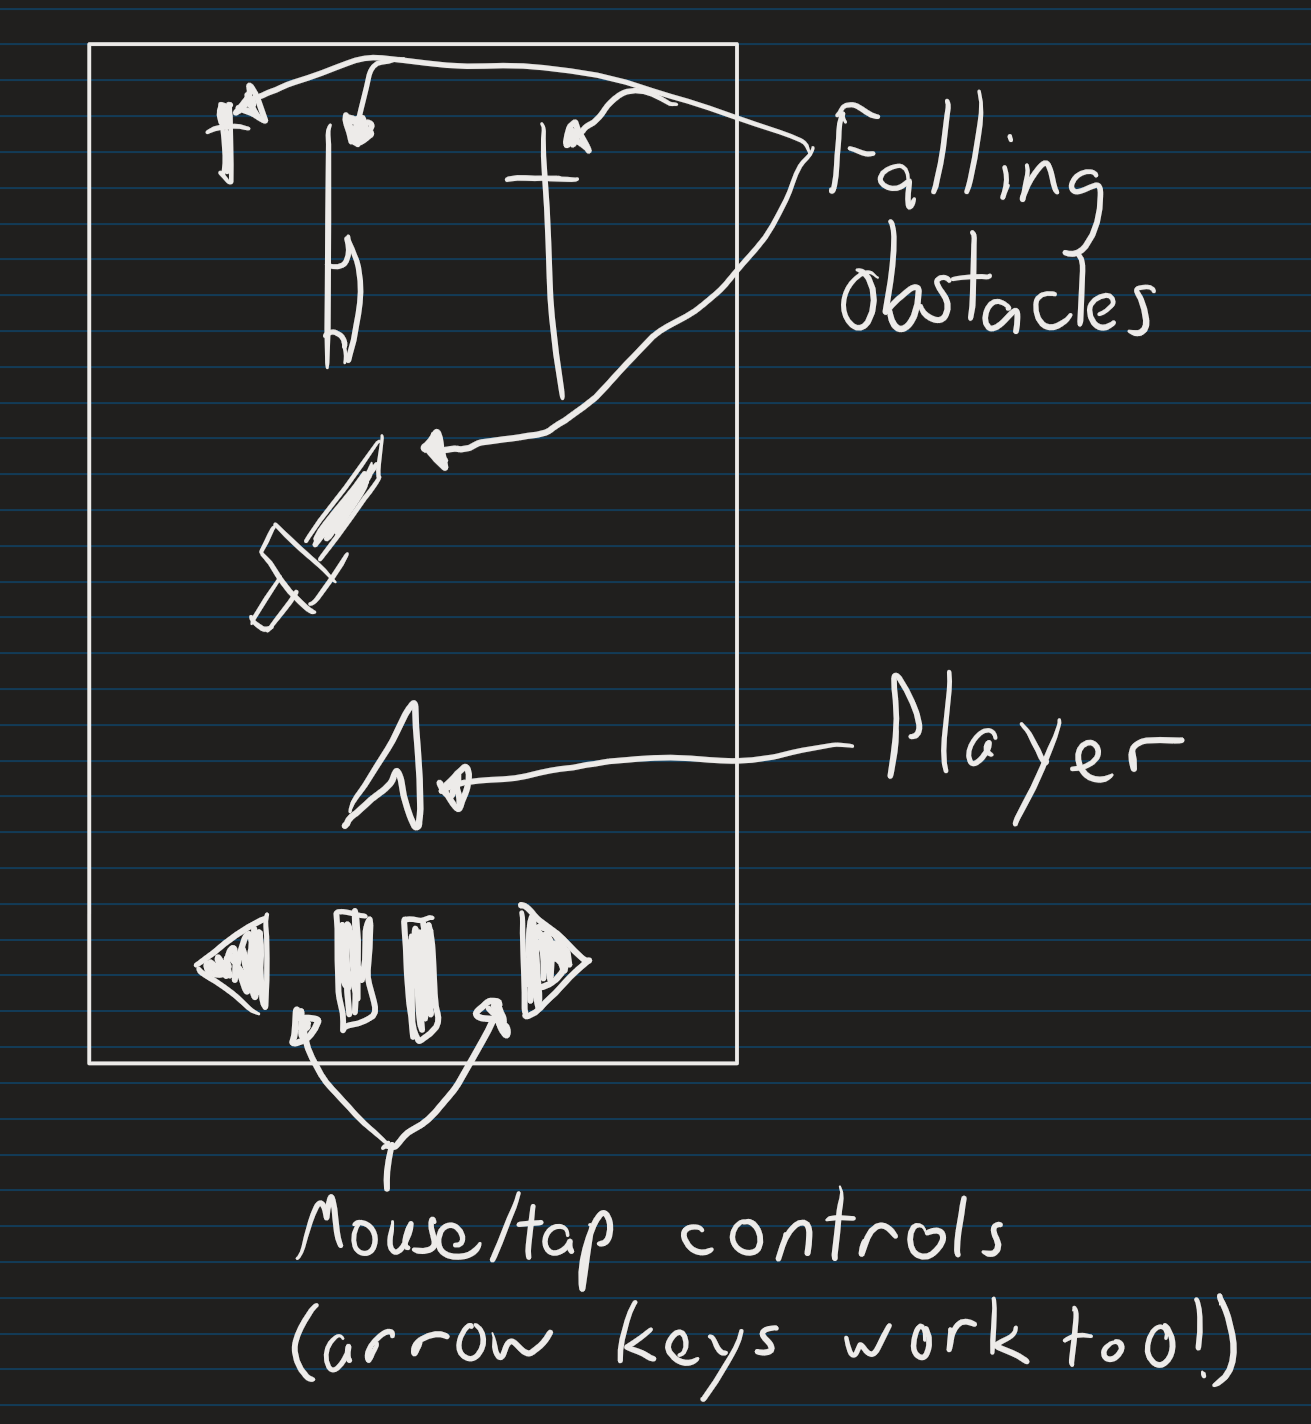 Falling
obstacles
Player
Mouse/tap controls
(arrow keys work too!)